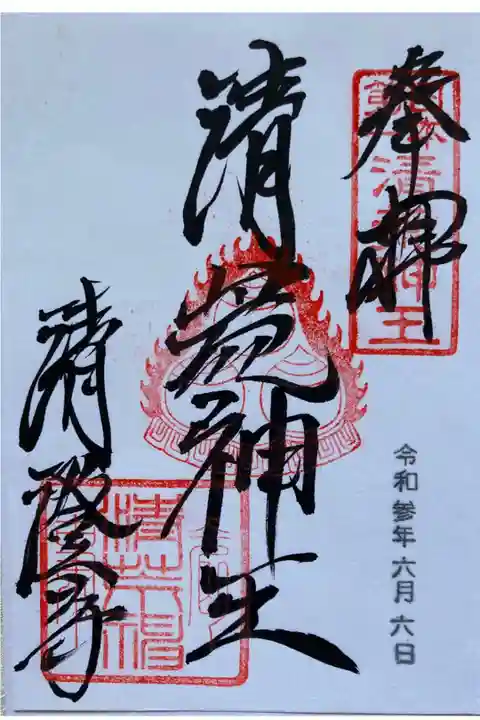 奉拝
清荒神王
清澄寺
令和参年六月六日